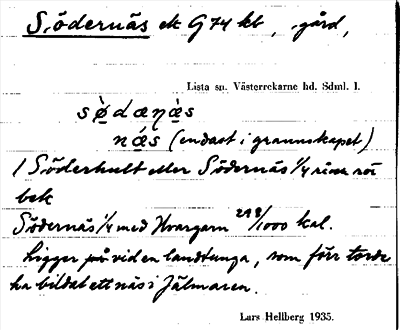 Södernäs ek G74 kb, gård,
Lista sn. Västerrekarne hd. Sdml. l.
sø̀dæɳæ̀s
næ̀s (endast i grannskapet)
1 Söderhult eller Södernäs 1/4
bek
Södernäs 1/4 med Hvargarn 298/1000 kal.
Ligger på vid en landtunga, som förr torde
ha bildat ett näs i Jälmaren.
Lars Hellberg 1935.